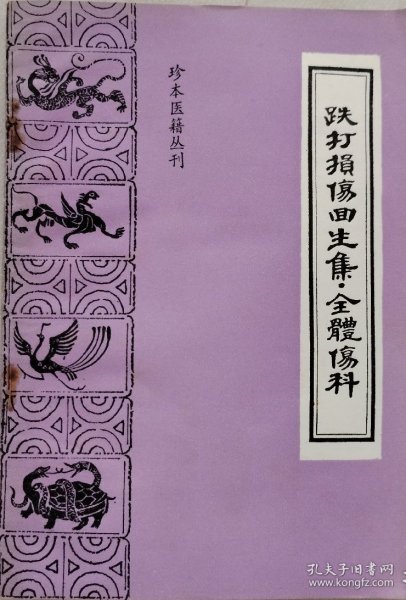 跌打損傷回生集·全體傷科
珍本医籍丛刊
孔夫子旧书网
www.kongfz.com